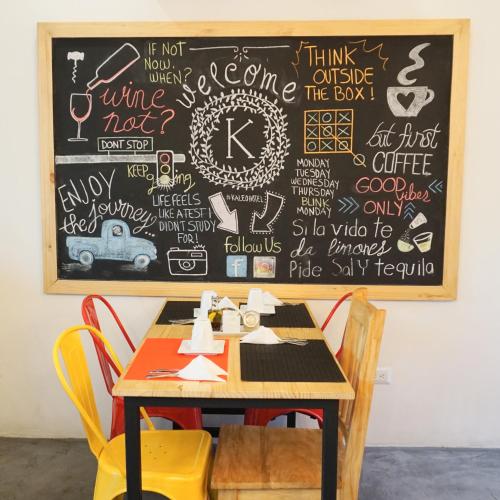 IF NOT
NOW,
WHEN?
wine
not?
DONT STOP
KEEP
going
ENJOY
the journey...
LIFE FEELS
LIKE A TEST I
DIDNT STUDY
FOR!
welcome
K
#KALEOHOTEL
Follow Us
f
THINK
OUTSIDE
THE BOX!
MONDAY
TUESDAY
WEDNESDAY
THURSDAY
BLINK
MONDAY
but first
COFFEE
GOOD vibes
ONLY
Si la vida te
da limones
Pide Sal y tequila